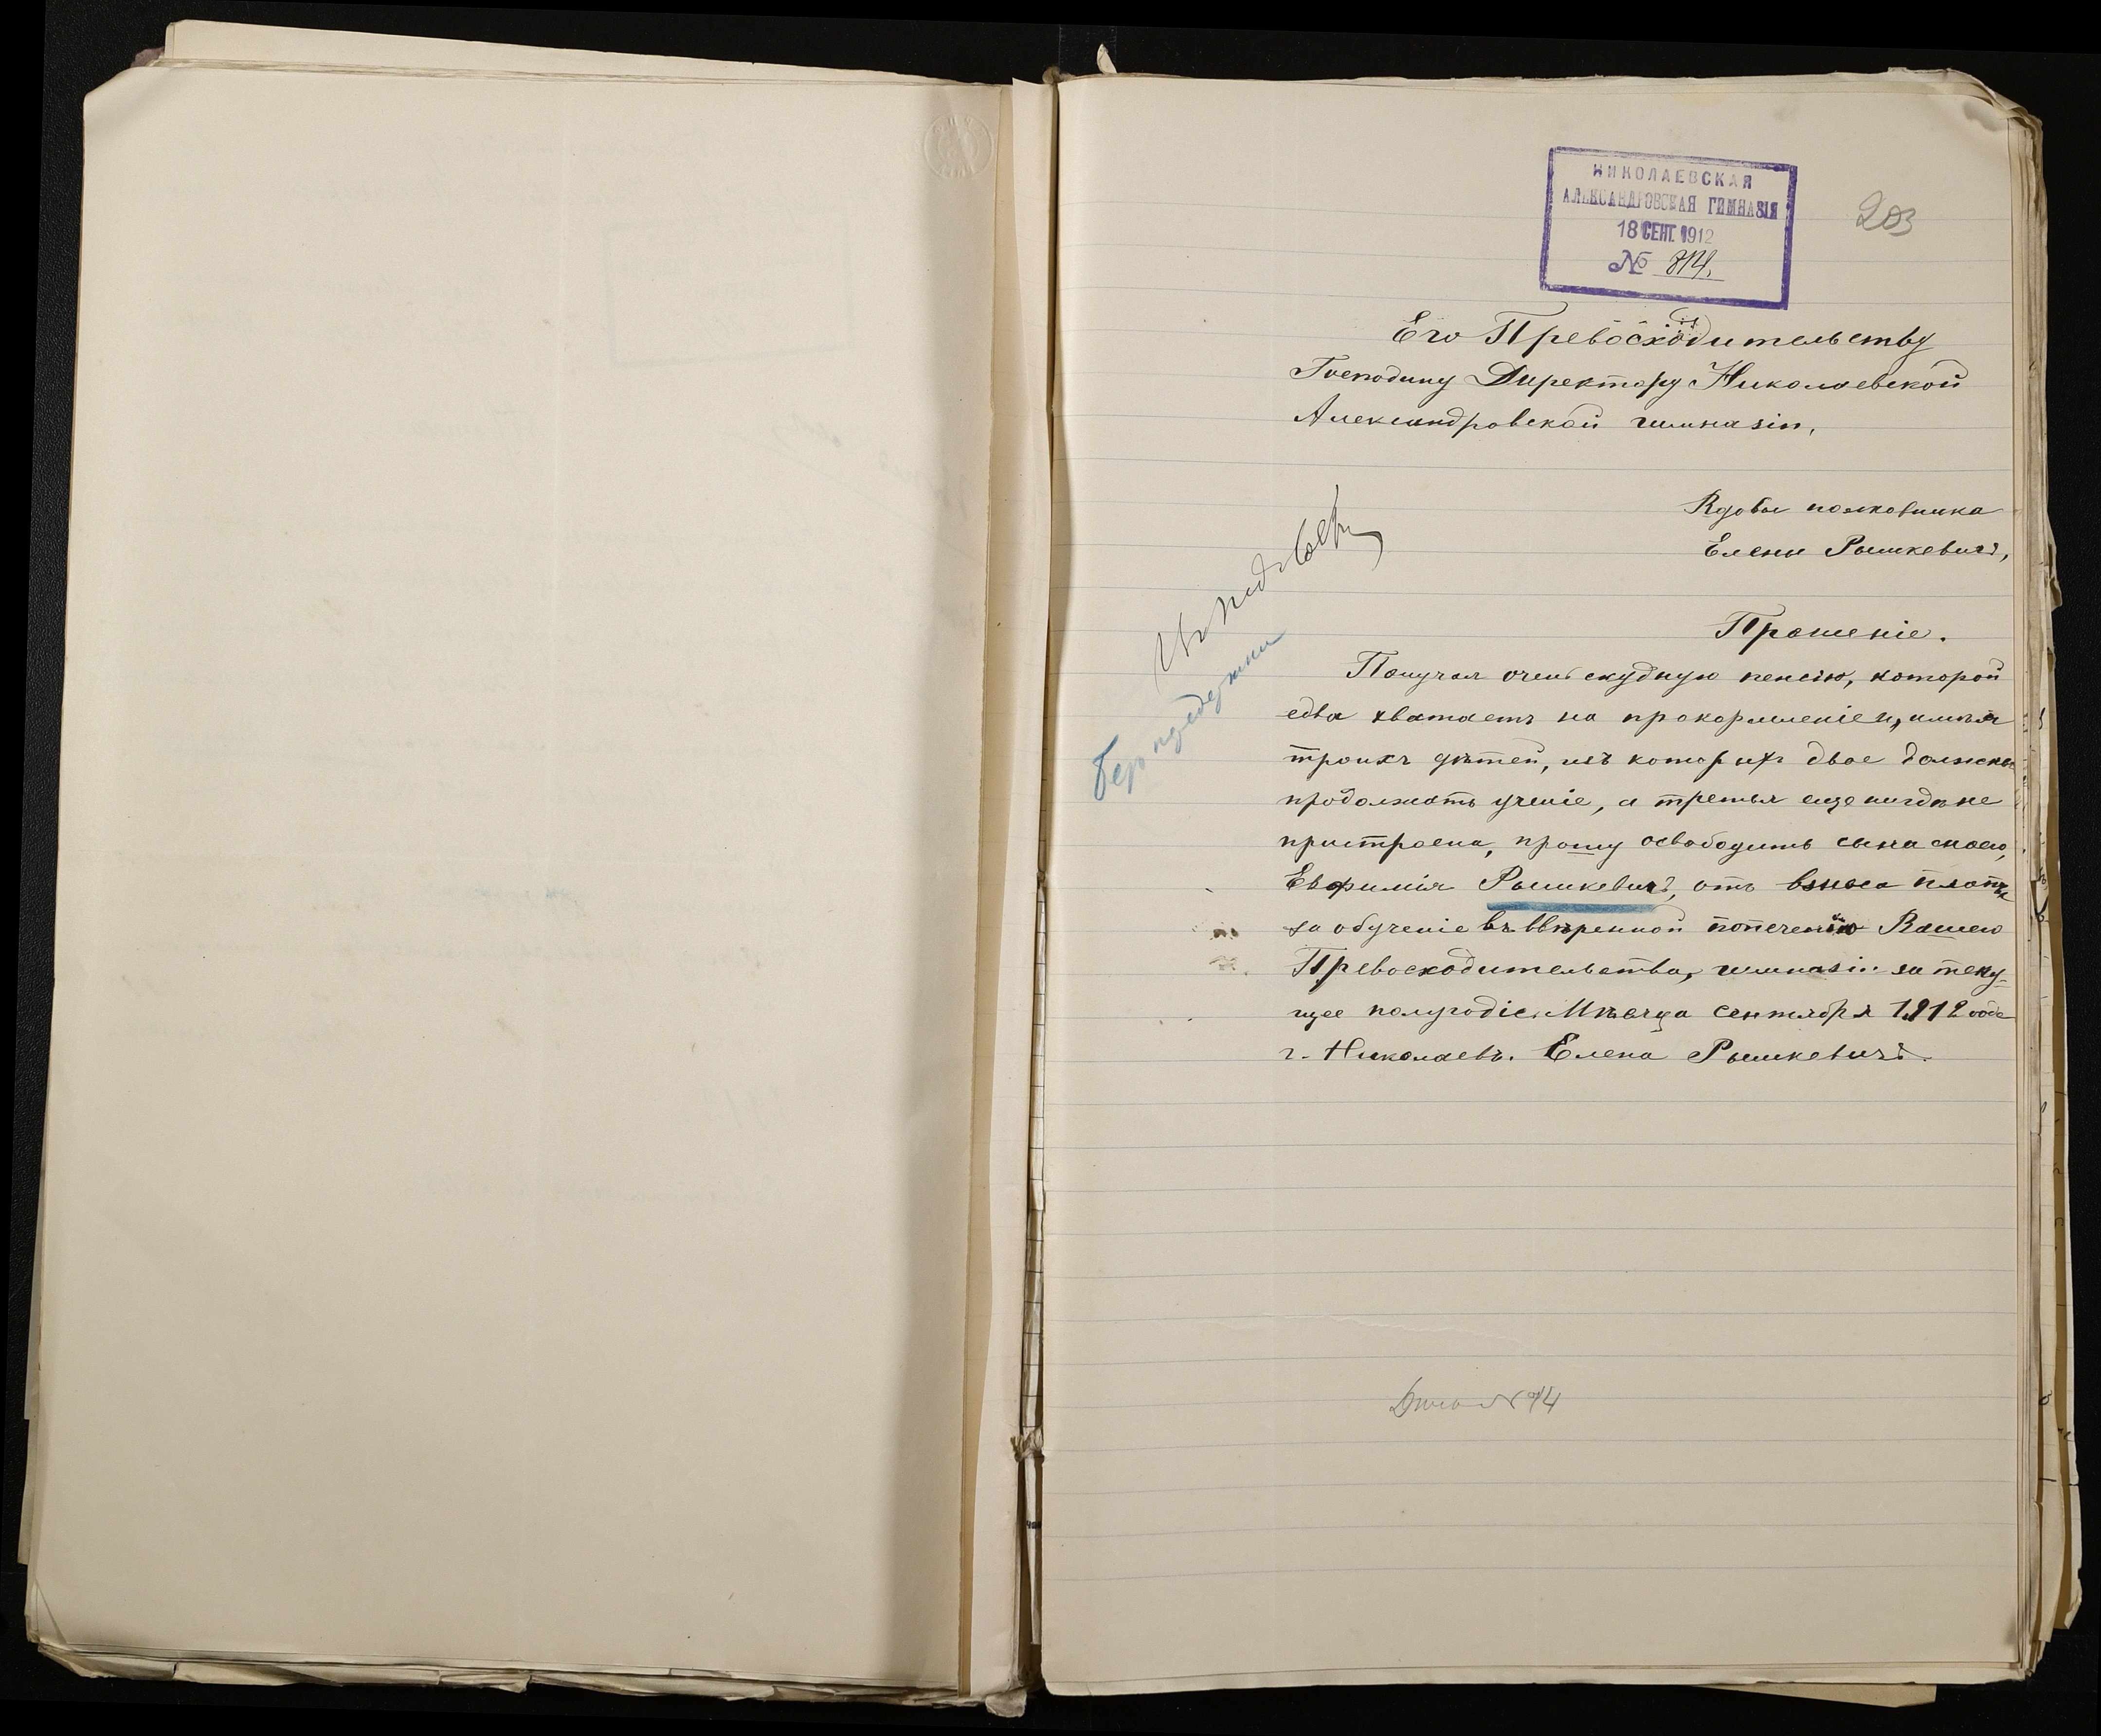 НИКОЛАЕВСКАЯ
АЛЕКСАНДРОВСКАЯ ГИМНАЗІЯ
18 СЕНТ. 1912
№ 814.
203
Его Превосходительству
Господину Директору Николаевской
Александровской гимназіи,
Вдовы полковника
Елены Рышкевичъ,
Прошеніе.
Получая очень скудную пенсію, которой
едва хватаетъ на прокормленіе и, имѣя
троихъ дѣтей, изъ которыхъ двое должны
продолжать ученіе, а третья еще нигдѣ не
пристроена, прошу освободить сына моего,
Евфимія Рышкевичъ, отъ взноса платы
за обученіе въ ввѣренной попеченію Вашего
Превосходительства, гимназіи за теку-
щее полугодіе. Мѣсяца сентября 1912 года
г. Николаевъ. Елена Рышкевичъ.
Дѣло №